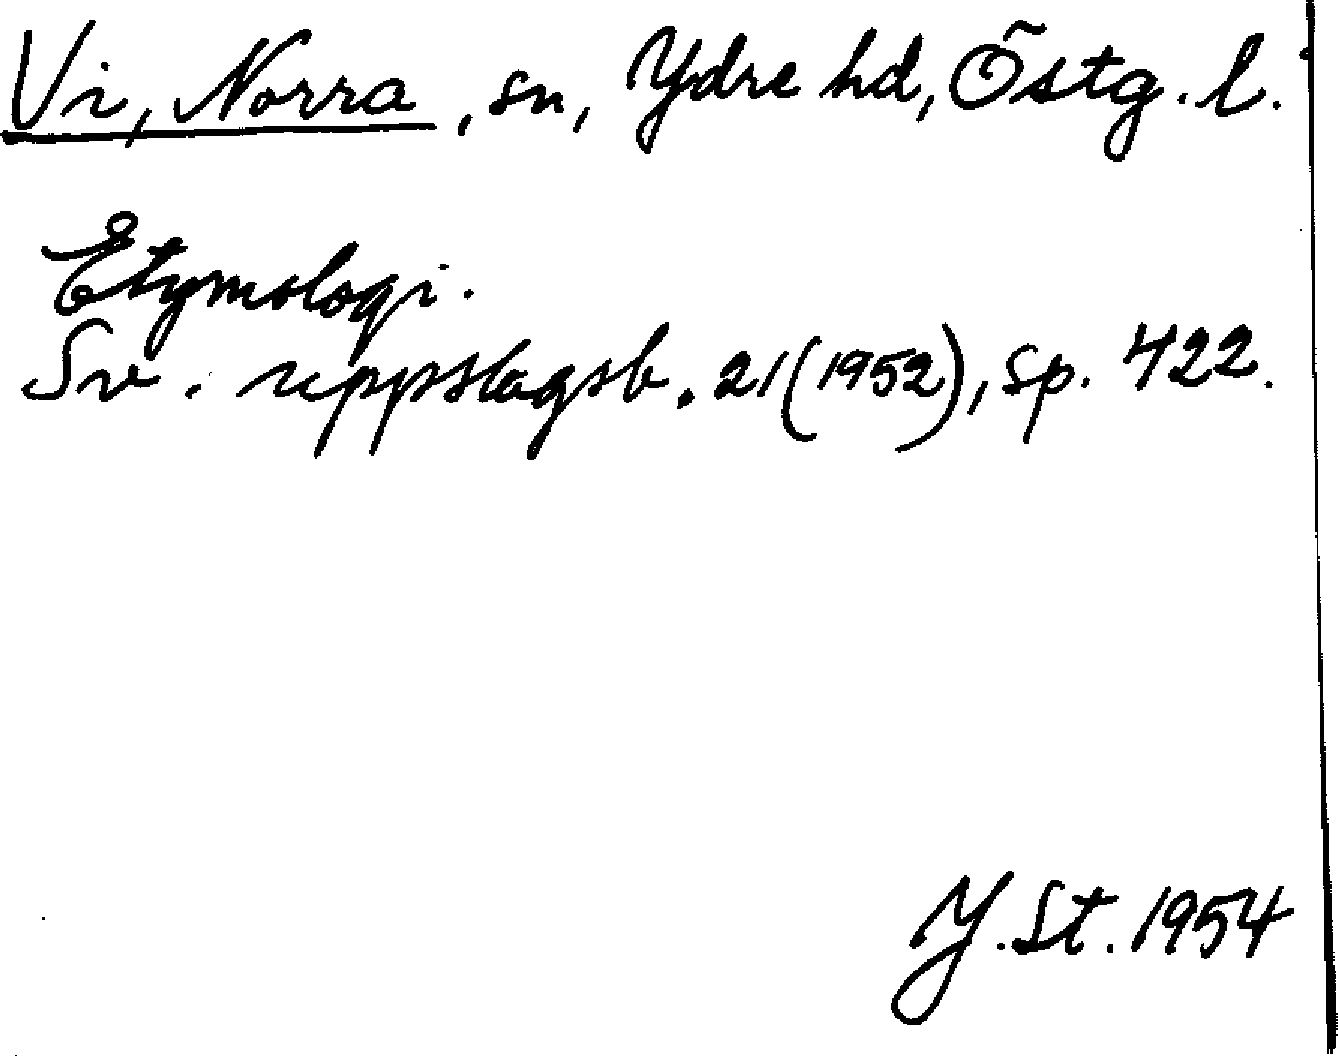 Vi, Norra, sn, Ydre hd, Östg. l.
Etymologi.
Sv. uppslagsb. 21 (1952), sp. 422.
Y. St. 1954